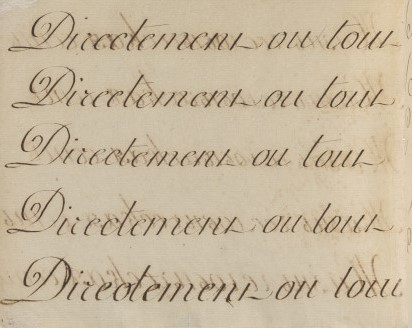 Directement ou tout
Directement ou tout
Directement ou tout
Directement ou tout
Directement ou tout